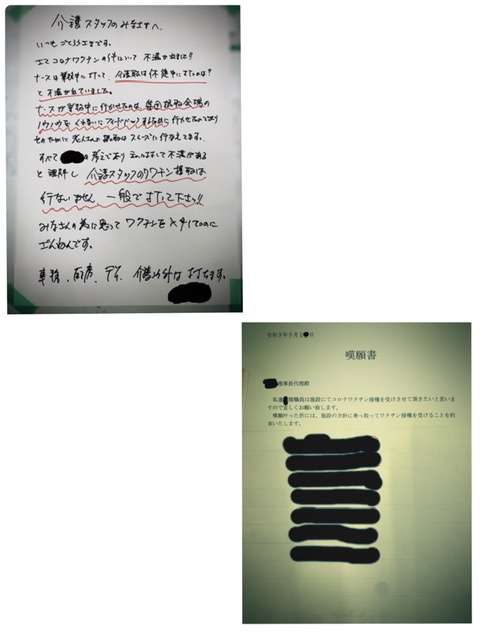 介護スタッフのみなさまへ
いつもごくろうさまです。
さてコロナワクチンの件について 不満が出ました。
ナースは業務中に打って、介護職は休憩中に打つのは?
と不満が出ていました。
ナースが業務中に行かせたのは 集団接種会場の
ノウハウを
そのために 老人さんの 接種は スムーズに 行なえてます。
すべて の考えであり それに対して 不満がある
と理解し 介護スタッフのワクチン接種は
行ないません 一般で打って下さい!!
みなさんの為に思って ワクチンを 入手したのに
ざんねんです。
事務、厨房、デイ、介護以外は 打ちます。
令和3年5月2 日
嘆願書
理事長代理殿
私達 護職員は施設にてコロナワクチン接種を受けさせて頂きたいと思いま
すので宜しくお願い致します。
嘆願叶った折には、施設の方針に乗っ取ってワクチン接種を受けることを約
束いたします。